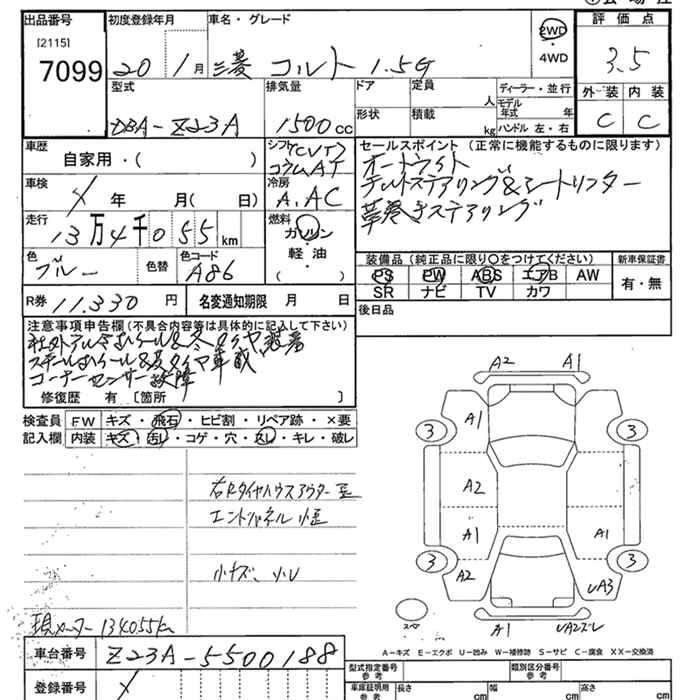 出品番号
[2115]
7099
初度登録年月
20 年 1月
車名・グレード
三菱 コルト 1.5G
2WD
・
4WD
評価点
3.5
外装 内装
C C
型式
DBA-Z23A
排気量
1500cc
ドア
定員
人
形状
積載
kg
ディーラー・並行
モデル年式 年
ハンドル 左・右
車歴
自家用・( )
シフト(CVT)
コラムAT
車検
年 月( 日)
冷房
A.AC
走行
13万4千055km
燃料
ガソリン
・
軽油
・
( )
色
ブルー
色替
色コード
A86
R券
11.330円
名変通知期限 月 日
セールスポイント (正常に機能するものに限ります)
オートライト
チルトステアリング&シートリフター
革巻きステアリング
装備品(純正品に限り○をつけてください)
新車保証書
PS PW ABS エアB AW
SR ナビ TV カワ
有・無
後日品
注意事項申告欄(不具合内容等は具体的に記入して下さい)
社外アルミホイール&冬タイヤ装着
スチールホイール&夏タイヤ車載
コーナーセンサー故障
修復歴 有 〔箇所 〕
検査員
記入欄
FW キズ・飛石・ヒビ割・リペア跡・×要
内装 キズ・汚レ・コゲ・穴・スレ・キレ・破レ
右Rタイヤハウスアウター
エンドパネル
小キズ、
現メーター134055km
車台番号
Z23A-5500188
登録番号
A2 A1
A1
3 3
A2
A1 A1
3 3
A2 UA3
スペア
A1 UA2ズレ
A-キズ E-エクボ U-凹み W-補修跡 S-サビ C-腐食 XX-交換済
型式指定番号
参考
類別区分番号
参考
車庫証明用
参考
長さ cm
幅 cm
高さ cm